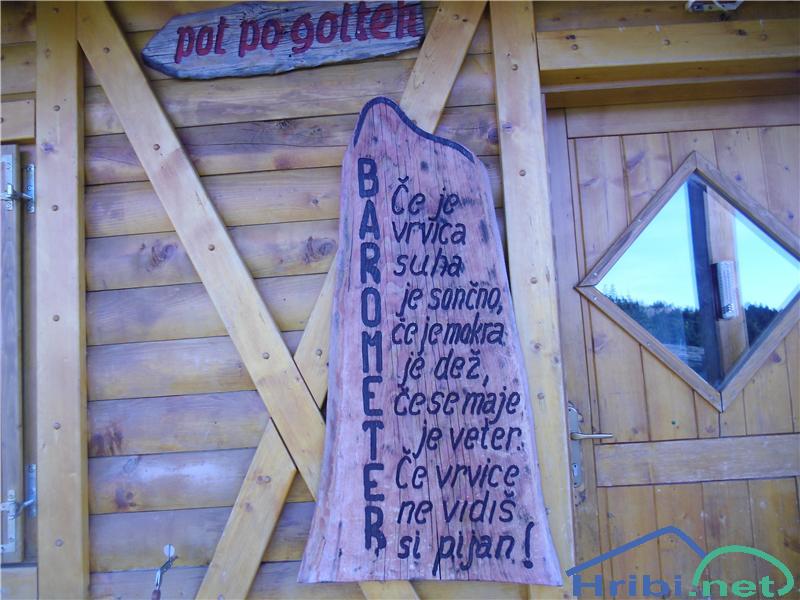 pot po golteh
BAROMETER
Če je
vrvica
suha
je sončno,
če je mokra
je dež,
če se maje
je veter.
Če vrvice
ne vidiš
si pijan!
Hribi.net